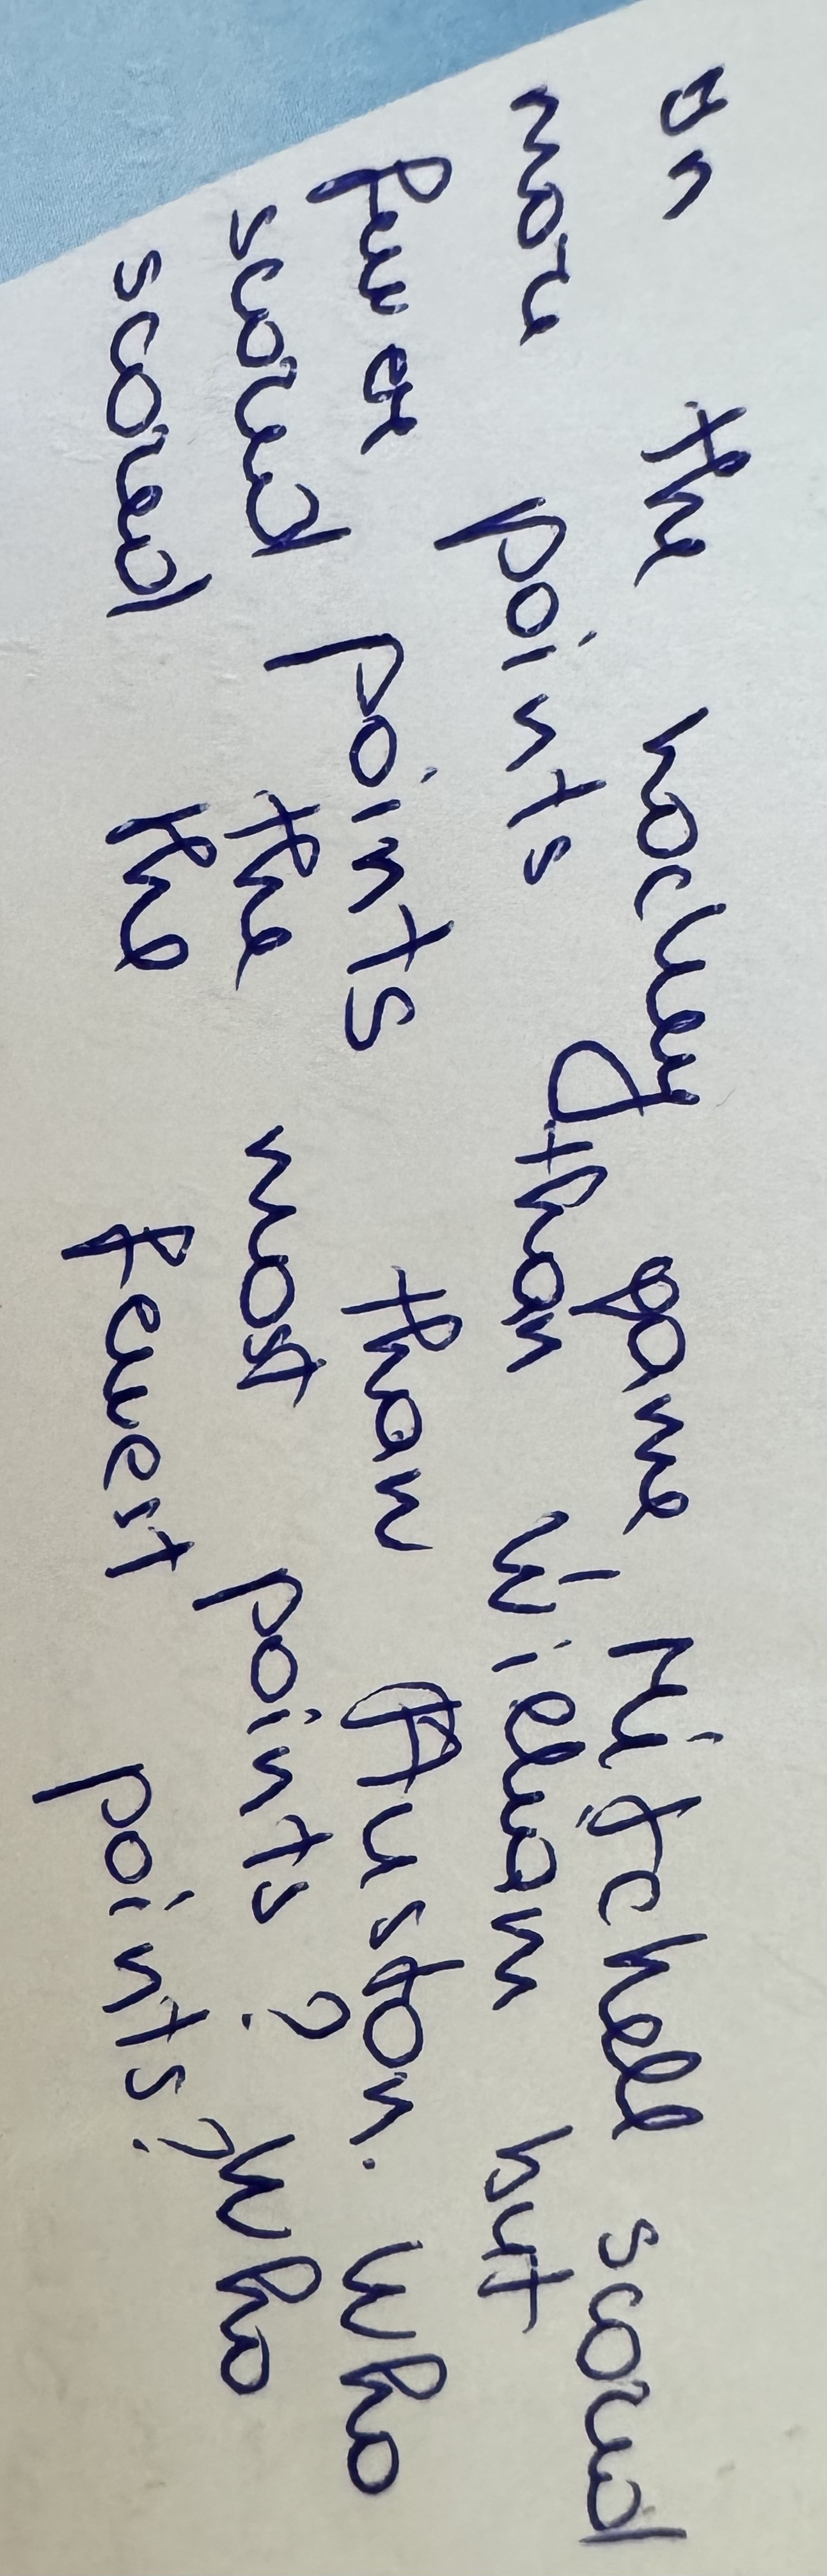 In the hockey game, Mitchell scored
more points than William but
fewer points than Auston. Who
scored the most points? Who
scored the fewest points?